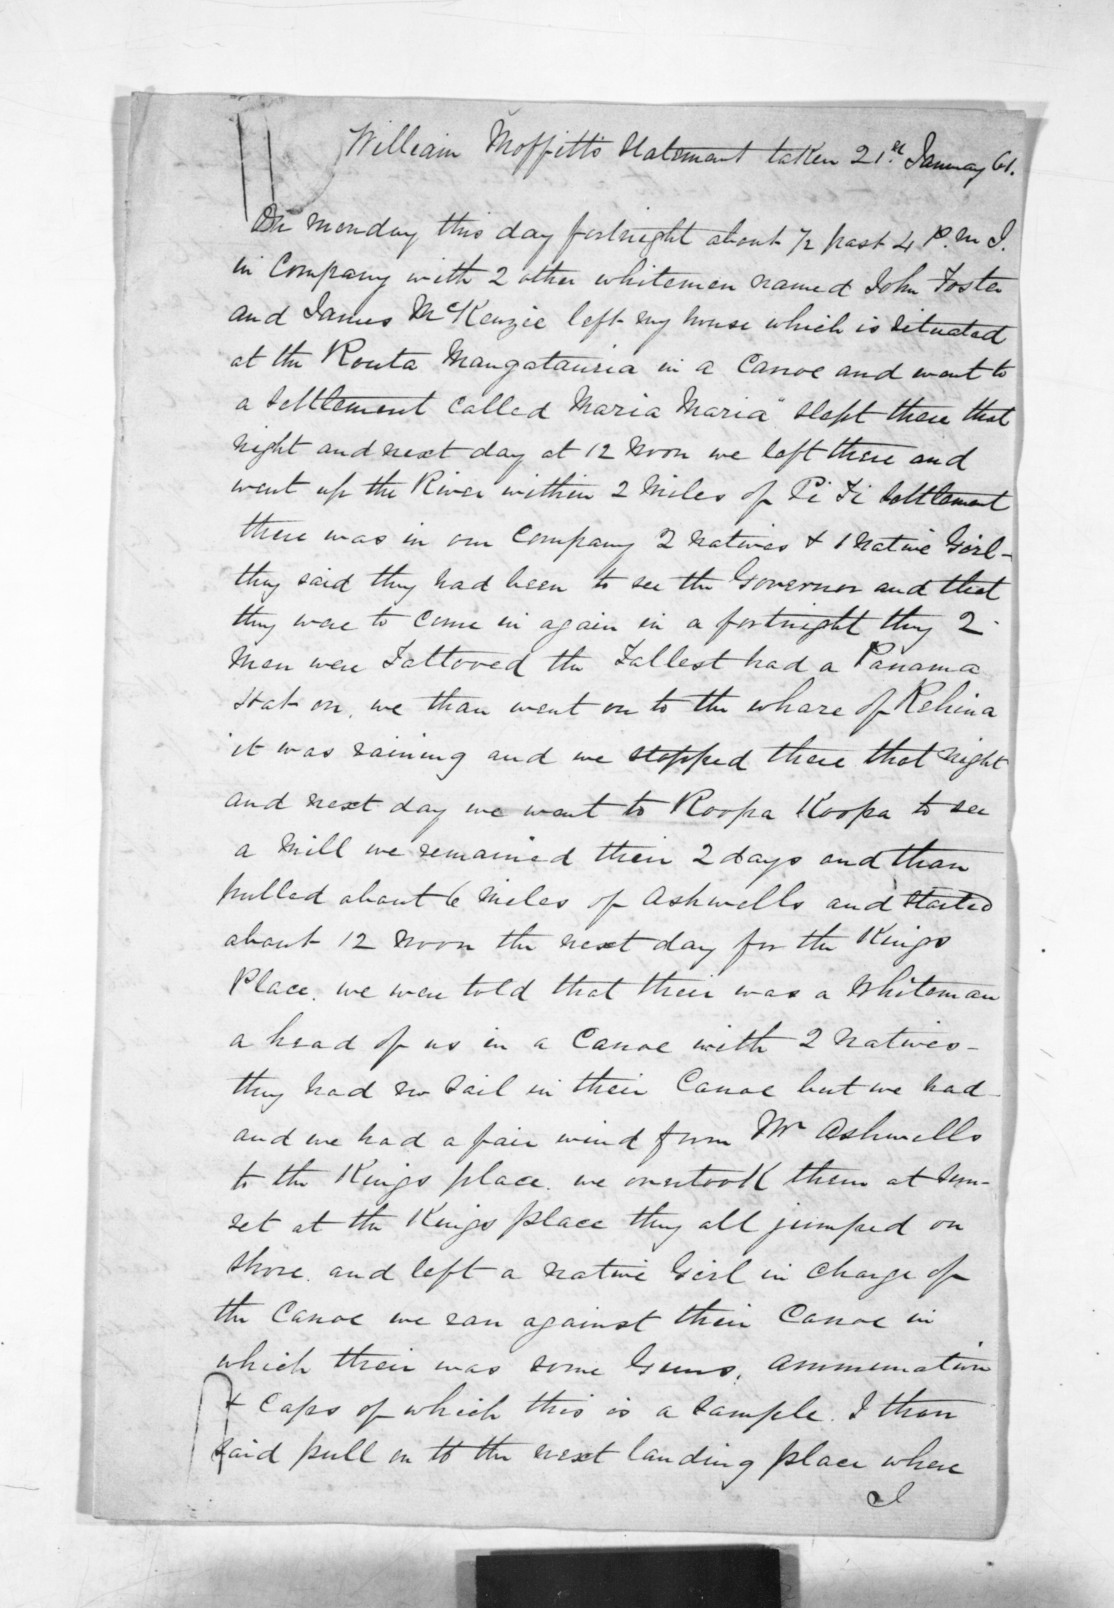 William Moffitt's Statement taken 21st January 61.
On Monday this day fortnight about ½ past 4 P.M I.
in Company with 2 other whitemen named John Foster
and James McKenzie left my house which is situated
at the Routa Maugatauria in a Canoe and went to
a Settlement Called Maria Maria" slept there that
night and next day at 12 Noon we left there and
went up the River within 2 Miles of Pi Ti Settlement
there was in our Company 2 Natives & 1 Native Girl-
they said they had been to see the Governor and that
they were to Come in again in a fortnight they 2
Men were Tattooed the Tallest had a Panama
Hat on. we than went on to the whare of Rehina
it was raining and we stopped there that night
and next day we went to Roopa Koopa to see
a Mill we remained their 2 days and than
pulled about 6 Miles of Ashwells and started
about 12 Noon the next day for the Kings
Place. we were told that their was a Whiteman
a head of us in a Canoe with 2 Natives-
they had no Sail in their Canoe but we had-
and we had a fair wind from Mr Ashwells
to the Kings place. we overtook them at Sun-
set at the Kings place they all jumped on
Shore. and left a Native Girl in Charge of
the Canoe we ran against their Canoe in
which their was some Guns. Ammunation
& Caps of which this is a Sample. I than
said pull on to the next landing place where
I